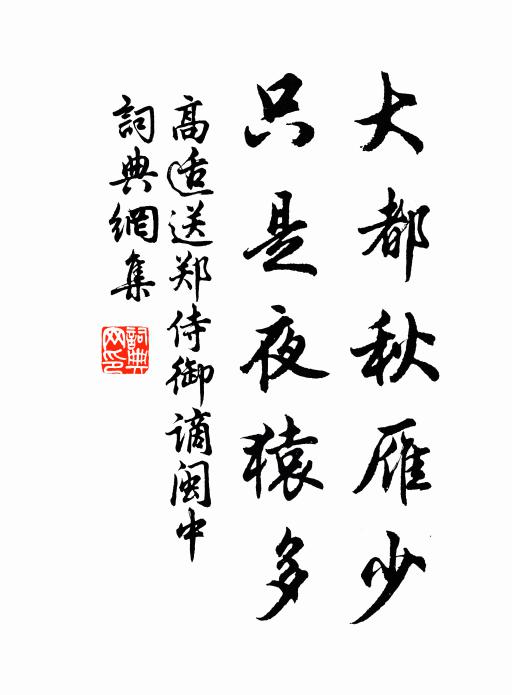 大都秋雁少
只是夜猿多
高适送郑侍御谪闽中
詞典網集
詞典網印